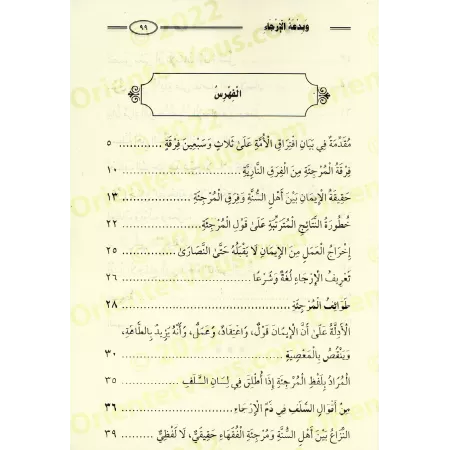 وَبِدْعَةُ الْإِرْجَاءِ
٩٩
الْفِهْرِسُ
مُقَدِّمَةٌ فِي بَيَانِ افْتِرَاقِ الْأُمَّةِ عَلَىٰ ثَلَاثٍ وَسَبْعِينَ فِرْقَةً ............ ٥
فِرْقَةُ الْمُرْجِئَةِ مِنَ الْفِرَقِ النَّارِيَّةِ ............ ١٠
حَقِيقَةُ الْإِيمَانِ بَيْنَ أَهْلِ السُّنَّةِ وَفِرَقِ الْمُرْجِئَةِ ............ ١٣
خُطُورَةُ النَّتَائِجِ الْمُتَرَتِّبَةِ عَلَىٰ قَوْلِ الْمُرْجِئَةِ ............ ٢٢
إِخْرَاجُ الْعَمَلِ مِنَ الْإِيمَانِ لَا يَقْبَلُهُ حَتَّىٰ النَّصَارَىٰ ............ ٢٥
تَعْرِيفُ الْإِرْجَاءِ لُغَةً وَشَرْعًا ............ ٢٦
طَوَائِفُ الْمُرْجِئَةِ ............ ٢٨
الْأَدِلَّةُ عَلَىٰ أَنَّ الْإِيمَانَ قَوْلٌ، وَاعْتِقَادٌ، وَعَمَلٌ، وَأَنَّهُ يَزِيدُ بِالطَّاعَةِ،
وَيَنْقُصُ بِالْمَعْصِيَةِ ............ ٣٠
الْمُرَادُ بِلَفْظِ الْمُرْجِئَةِ إِذَا أُطْلِقَ فِي لِسَانِ السَّلَفِ ............ ٣٥
مِنْ أَقْوَالِ السَّلَفِ فِي ذَمِّ الْإِرْجَاءِ ............ ٣٦
النِّزَاعُ بَيْنَ أَهْلِ السُّنَّةِ وَمُرْجِئَةِ الْفُقَهَاءِ حَقِيقِيٌّ، لَا لَفْظِيٌّ ............ ٣٩
Orientevous.com © 2022